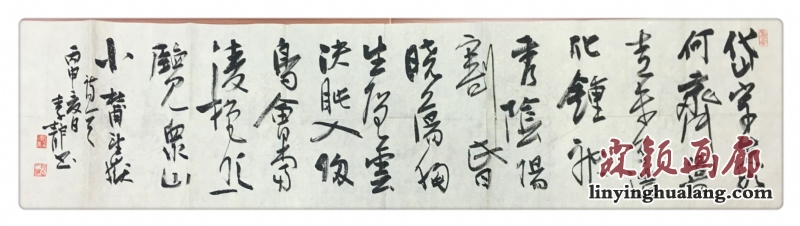 岱宗夫如
何齊魯
青未了造
化鍾神
秀陰陽
割昏
曉蕩胸
生層雲
決眦入歸
鳥會當
凌絶頂一
覽衆山
小杜甫望嶽
詩一首
丙申夏日李靜書
霖颖画廊
linyinghualang.com